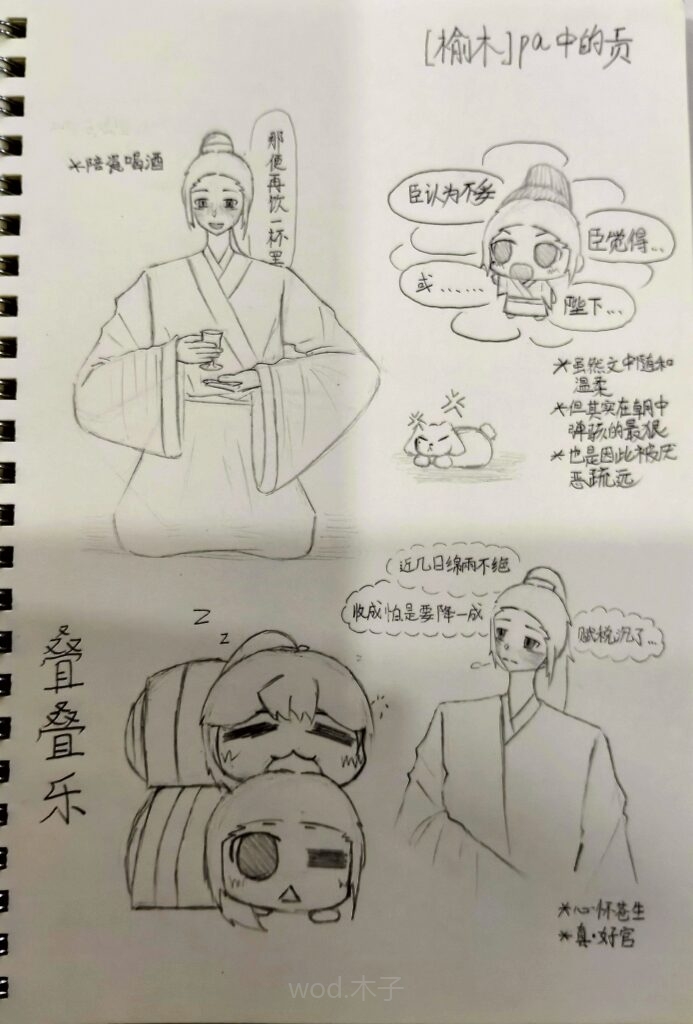 [榆木]pa中的贡
*陪瓷喝酒
那便再饮一杯罢
臣认为不妥
臣觉得...
或......
陛下...
*虽然文中随和
温柔
*但其实在朝中
弹骇的最狠
*也是因此被厌
恶疏远
近几日绵雨不绝
收成怕是要降一成
赋税沉了...
z
z
叠叠乐
*心怀苍生
*真·好官
wod.木子